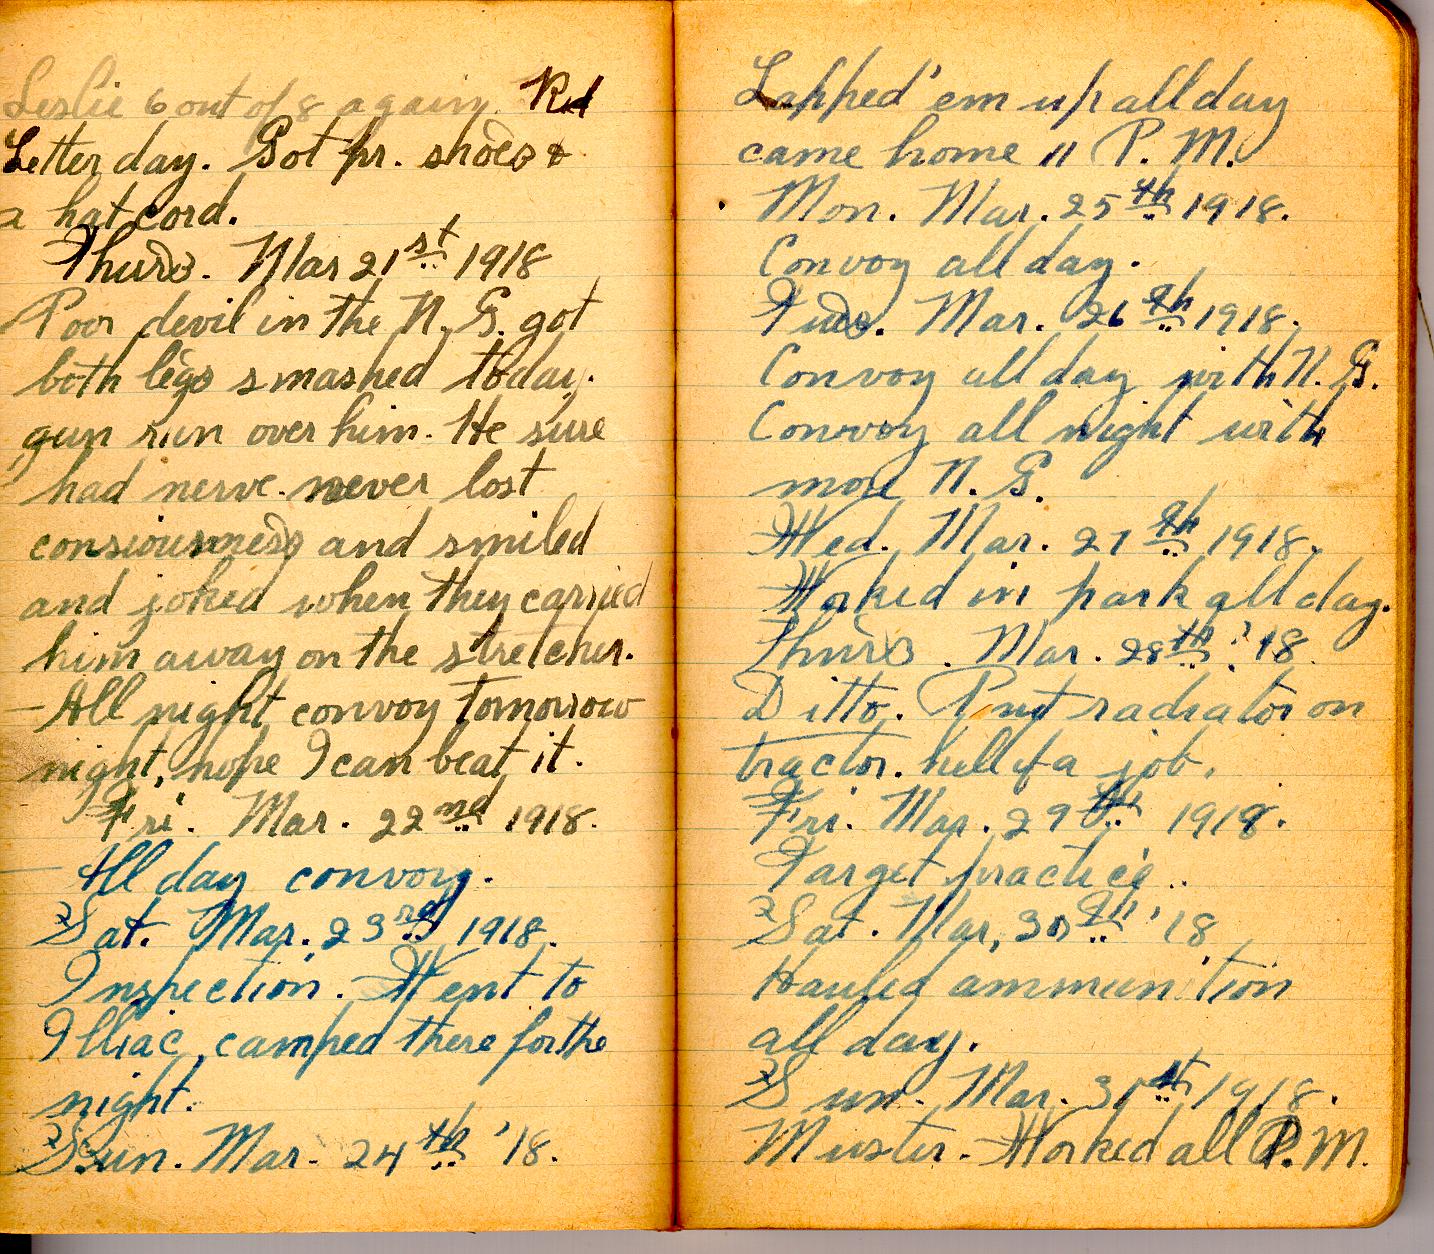 Leslie 6 out of 8 again. Red
Letter day. Got pr. shoes &
a hat cord.
Thurs. Mar 21st 1918
Poor devil in the N. G. got
both legs smashed today.
gun run over him. He sure
had nerve. never lost
consiousness and smiled
and joked when they carried
him away on the stretcher.
- All night convoy tomorrow
night, hope I can beat it.
Fri. Mar. 22nd 1918.
- All day convoy.
Sat. Mar. 23rd 1918.
Inspection. Went to
Illiac, camped there for the
night.
Sun. Mar. 24th '18.
Lapped 'em up all day
came home 11 P. M.
Mon. Mar. 25th 1918.
Convoy all day.
Tues. Mar. 26th 1918.
Convoy all day with N. G.
Convoy all night with
more N. G.
Wed. Mar. 27th 1918.
Worked in park all day.
Thurs. Mar. 28th '18.
Ditto. Put radiator on
tractor. hell of a job.
Fri. Mar. 29th 1918.
Target practice.
Sat. Mar. 30th '18
Hauled ammunition
all day.
Sun. Mar. 31st 1918.
Muster. Worked all P. M.